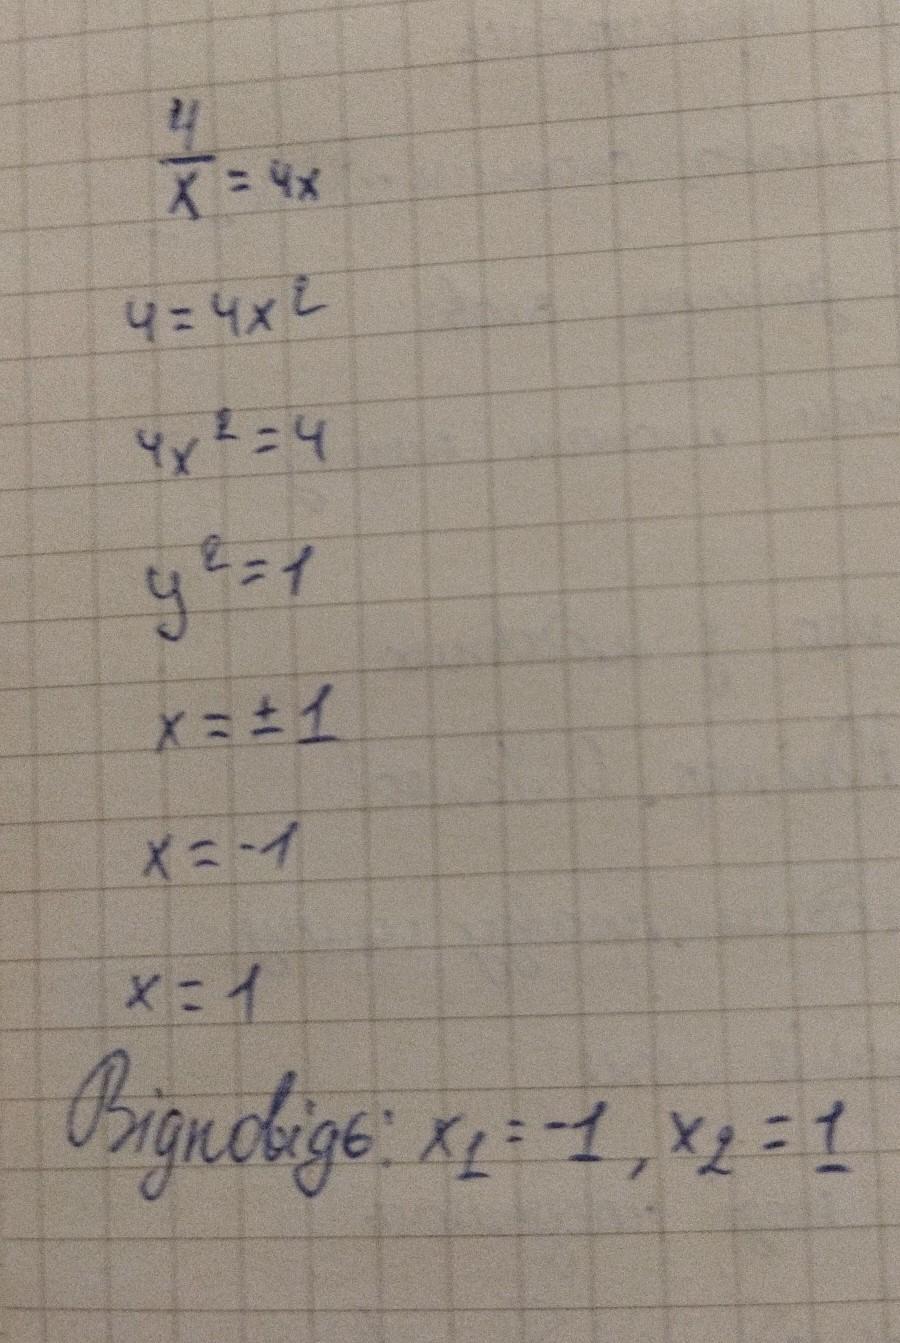 4/x = 4x
4 = 4x²
4x² = 4
y² = 1
x = ± 1
x = -1
x = 1
Відповідь: x₁ = -1, x₂ = 1